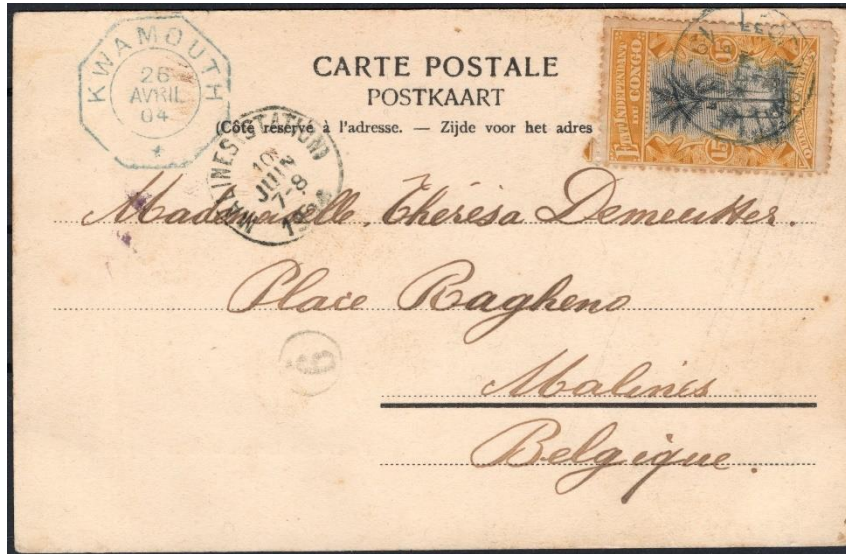 KWAMOUTH
26
AVRIL
04
CARTE POSTALE
POSTKAART
(Côté réservé à l'adresse. — Zijde voor het adres
MALINES (STATION)
10
JUIN
7-8
ETAT INDÉPENDANT
DU CONGO
15
15
Mademoiselle Thérésa Demeutter.
Place Ragheno
6
Malines
Belgique.